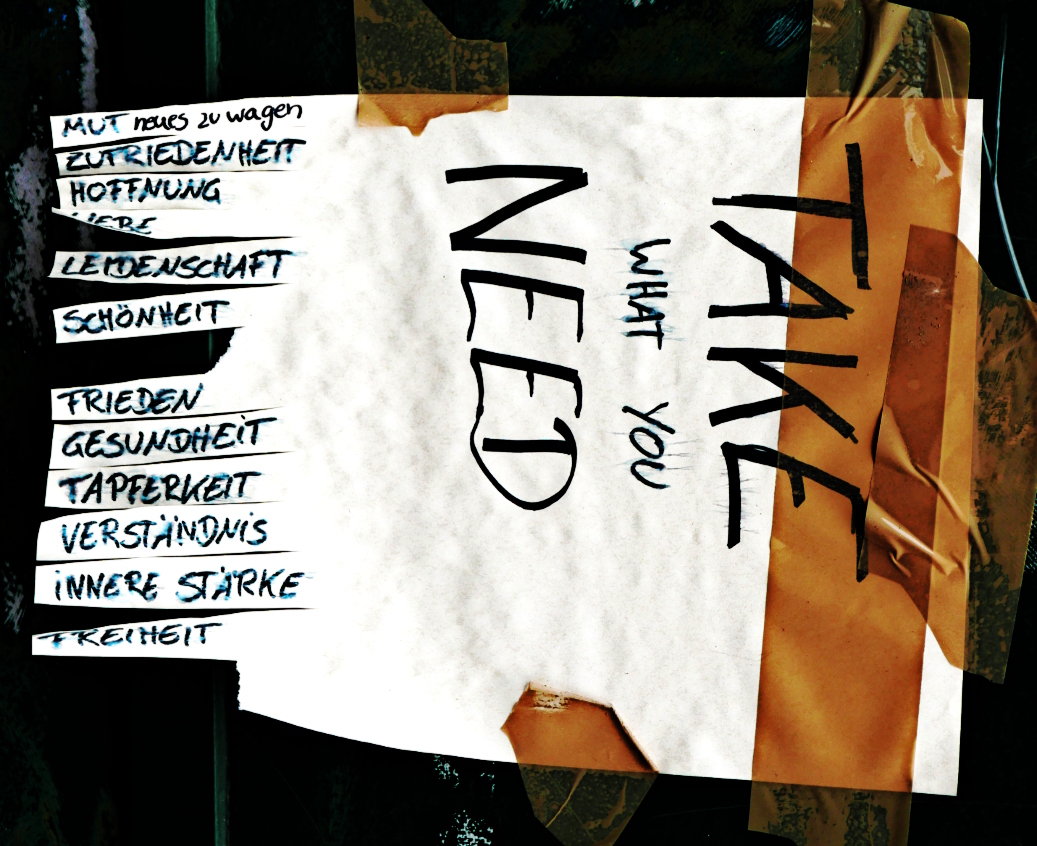 TAKE
WHAT YOU
NEED
MUT neues zu wagen
ZUFRIEDENHEIT
HOFFNUNG
LIEBE
LEIDENSCHAFT
SCHÖNHEIT
FRIEDEN
GESUNDHEIT
TAPFERKEIT
VERSTÄNDNIS
INNERE STÄRKE
FREIHEIT